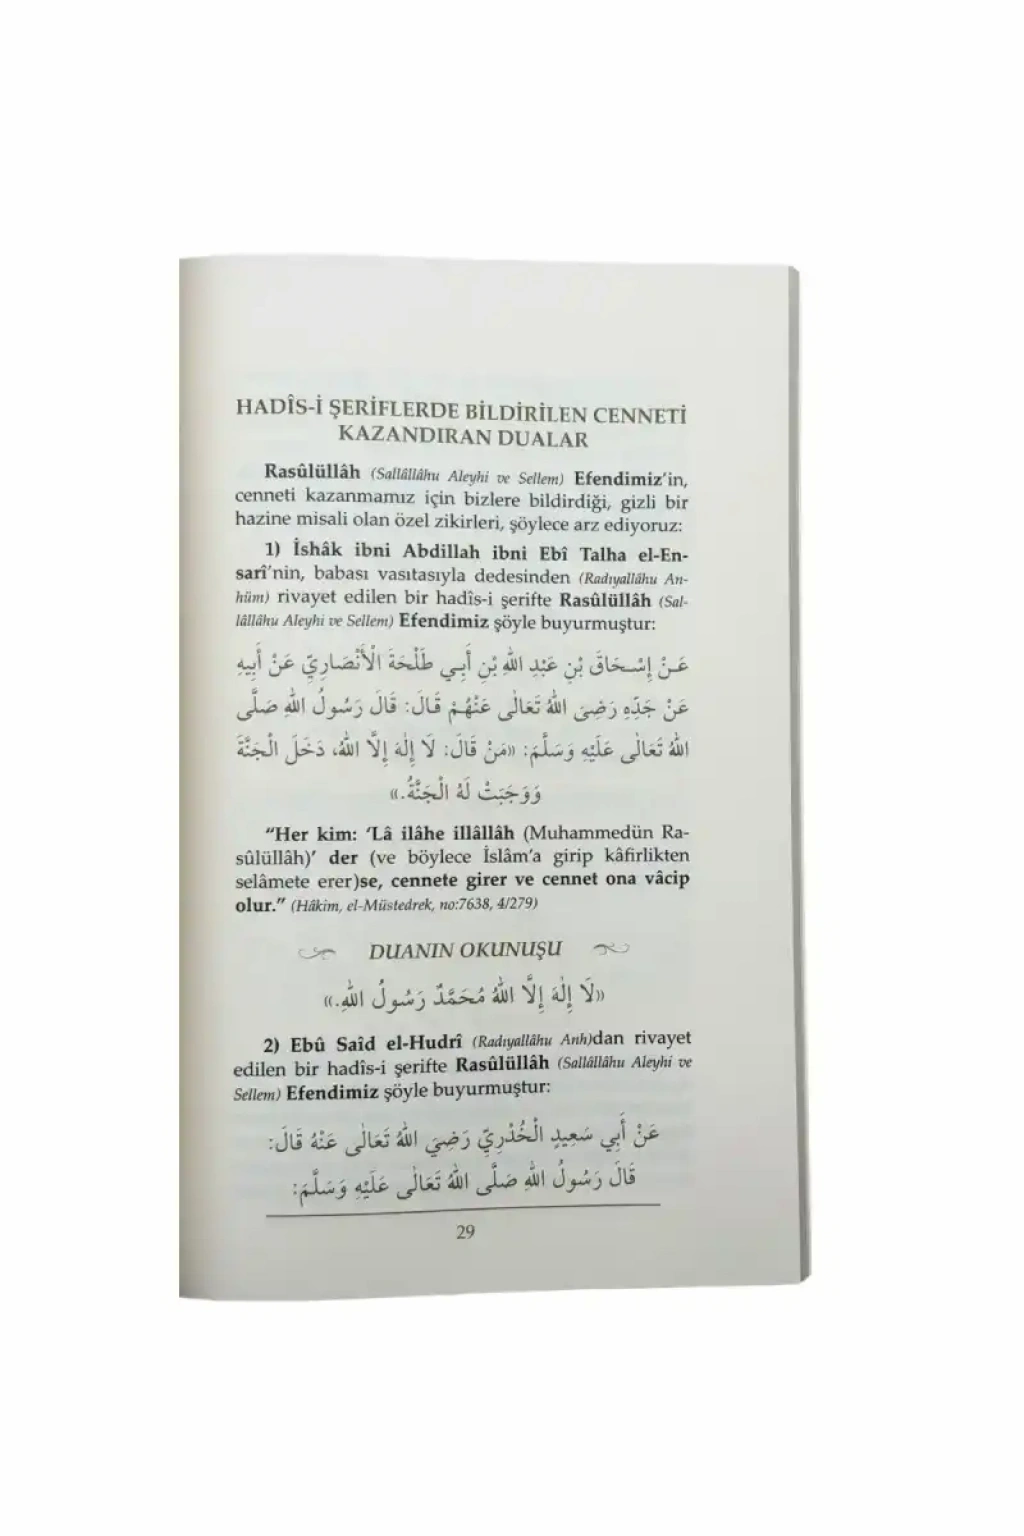 HADÎS-İ ŞERİFLERDE BİLDİRİLEN CENNETİ
KAZANDIRAN DUALAR
Rasûlüllâh (Sallâllâhu Aleyhi ve Sellem) Efendimiz'in,
cenneti kazanmamız için bizlere bildirdiği, gizli bir
hazine misali olan özel zikirleri, şöylece arz ediyoruz:
1) İshâk ibni Abdillah ibni Ebî Talha el-En-
sarî'nin, babası vasıtasıyla dedesinden (Radıyallâhu An-
hüm) rivayet edilen bir hadîs-i şerifte Rasûlüllâh (Sal-
lâllâhu Aleyhi ve Sellem) Efendimiz şöyle buyurmuştur:
عَنْ إِسْحَاقَ بْنِ عَبْدِ اللهِ بْنِ أَبِي طَلْحَةَ الْأَنْصَارِيِّ عَنْ أَبِيهِ
عَنْ جَدِّهِ رَضِيَ اللهُ تَعَالٰى عَنْهُمْ قَالَ: قَالَ رَسُولُ اللهِ صَلَّى
اللهُ تَعَالٰى عَلَيْهِ وَسَلَّمَ: «مَنْ قَالَ: لَا إِلٰهَ إِلَّا اللهُ، دَخَلَ الْجَنَّةَ
وَوَجَبَتْ لَهُ الْجَنَّةُ.»
"Her kim: 'Lâ ilâhe illâllâh (Muhammedün Ra-
sûlüllâh)' der (ve böylece İslâm'a girip kâfirlikten
selâmete erer)se, cennete girer ve cennet ona vâcip
olur." (Hâkim, el-Müstedrek, no:7638, 4/279)
DUANIN OKUNUŞU
«لَا إِلٰهَ إِلَّا اللهُ مُحَمَّدٌ رَسُولُ اللهِ.»
2) Ebû Saîd el-Hudrî (Radıyallâhu Anh)dan rivayet
edilen bir hadîs-i şerifte Rasûlüllâh (Sallâllâhu Aleyhi ve
Sellem) Efendimiz şöyle buyurmuştur:
عَنْ أَبِي سَعِيدٍ الْخُدْرِيِّ رَضِيَ اللهُ تَعَالٰى عَنْهُ قَالَ:
قَالَ رَسُولُ اللهِ صَلَّى اللهُ تَعَالٰى عَلَيْهِ وَسَلَّمَ:
29